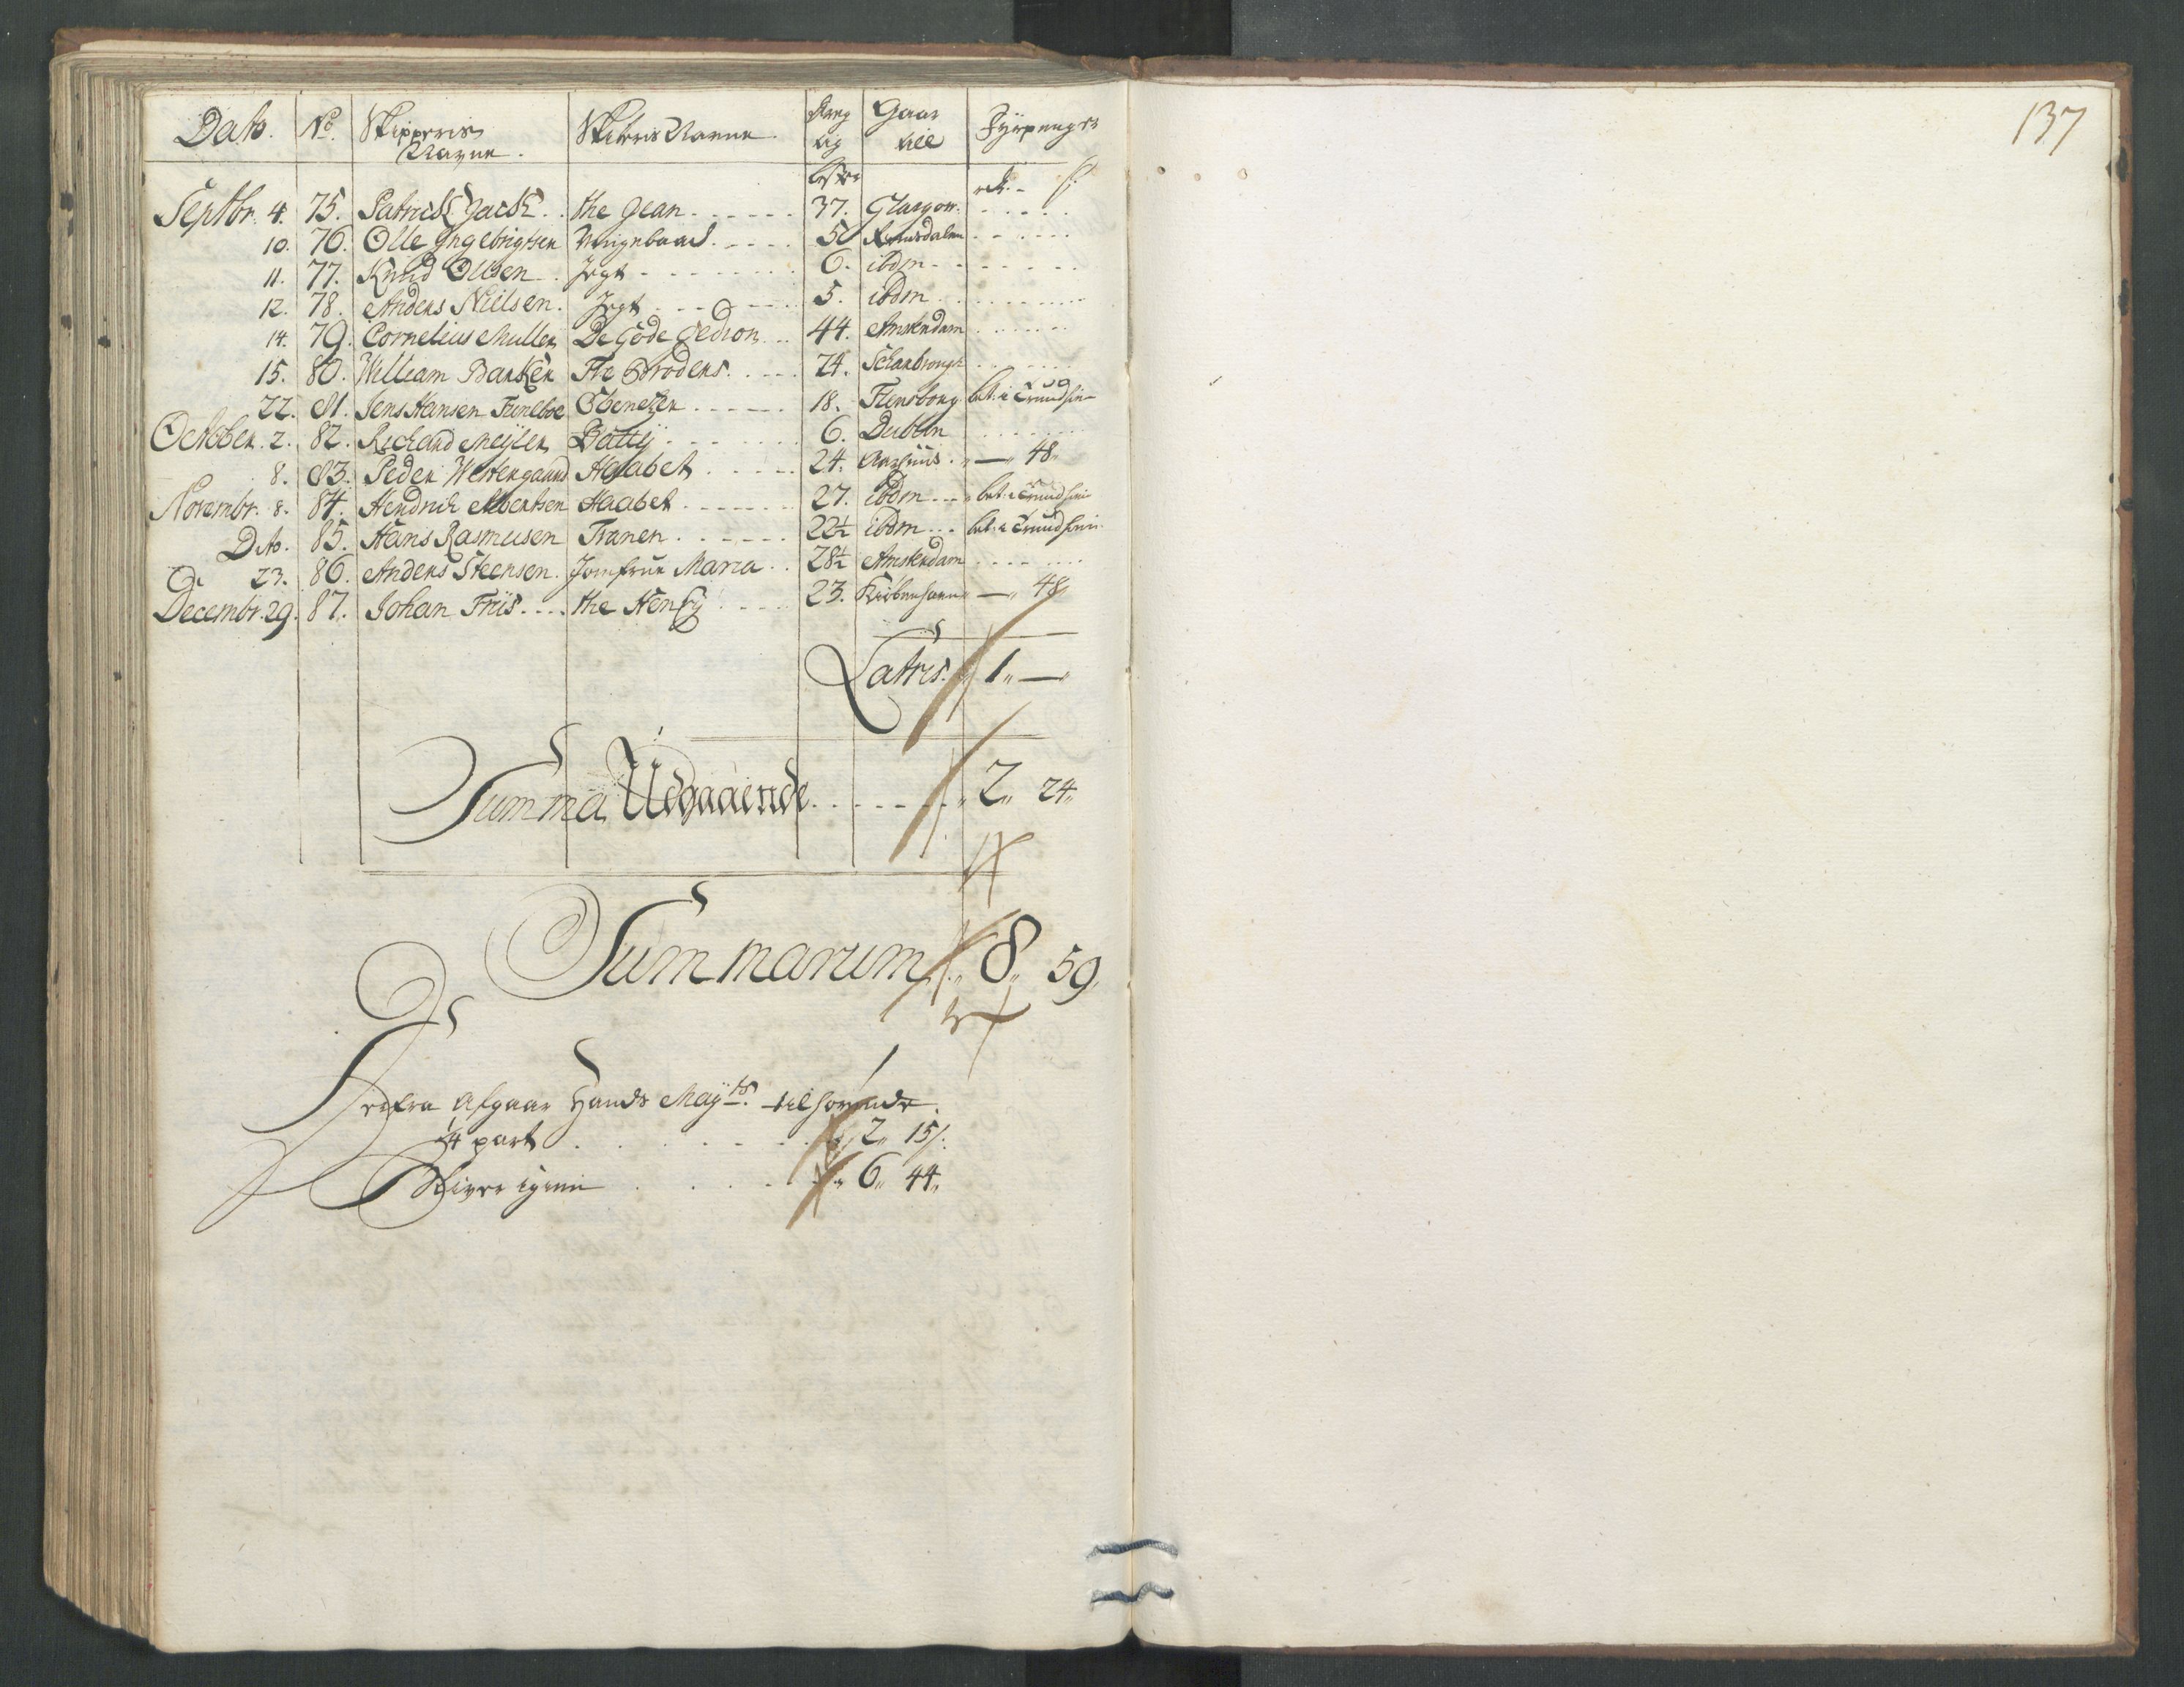 Dato. No. Skipperens Navne. Skibens Navne Dræg tig Gaar till Fyrpenger
Lester rdr. - s:
Septbr. 4. 75. Patrick Jack. . the Jean. - - - - - 37. Glasgow. - - - - -
10. 76. Olle Ingebrigtsen - - - - 5 Romsdalen - - - - -
11. 77. Knud Olsen. Jegt - - - - - - 6. ibdm - - - - - -
12. 78. Anders Nielsen. Jegt - - - - - 5. ibdm. - - - - - -
14. 79. Cornelius Muller De Gode Gedion. . . 44. Amsterdam. - - - - -
15. 80. William Barker The Broders. - - - 74. - - - - -
22. 81. Jens Hansen Ebenetzer. - - - - 18. Flensborg bet: i Trundhiem
October. 2. 82. Richard Meyler Batty. - - - - 6. Dublin - - - - -
8. 83. Peder Westergaard Haabet. - - - - 24. Aarhuus. „ — „ 48„
Novembr. 8. 84. Hendrich Albertsen Haabet - - - - - 27. ibdm - - „ bet: i Trundhiem
Dito. 85. Hans Rasmusen Tranen. - - - - - 22½ ibdm. . . bet: i Trundhiem
23. 86. Anders Steensen. Jomfrue Maria. . 28½ Amsterdam - - - - -
Decembr. 29. 87. Johan Friis. - - . the Henry - - - 23. Kiøbenhavn „ — „ 48„
Latris. 1„ —„
Summa Udgaaende. - - - - - - „ 2„ 24„
Summarum. „ 8„ 59„
Herfra Afgaar Hands Mayts. tilhørende
1/4 part . . . - - - - 2„ 15/.
Bliver igien . . . . . „ 6„ 44„
137